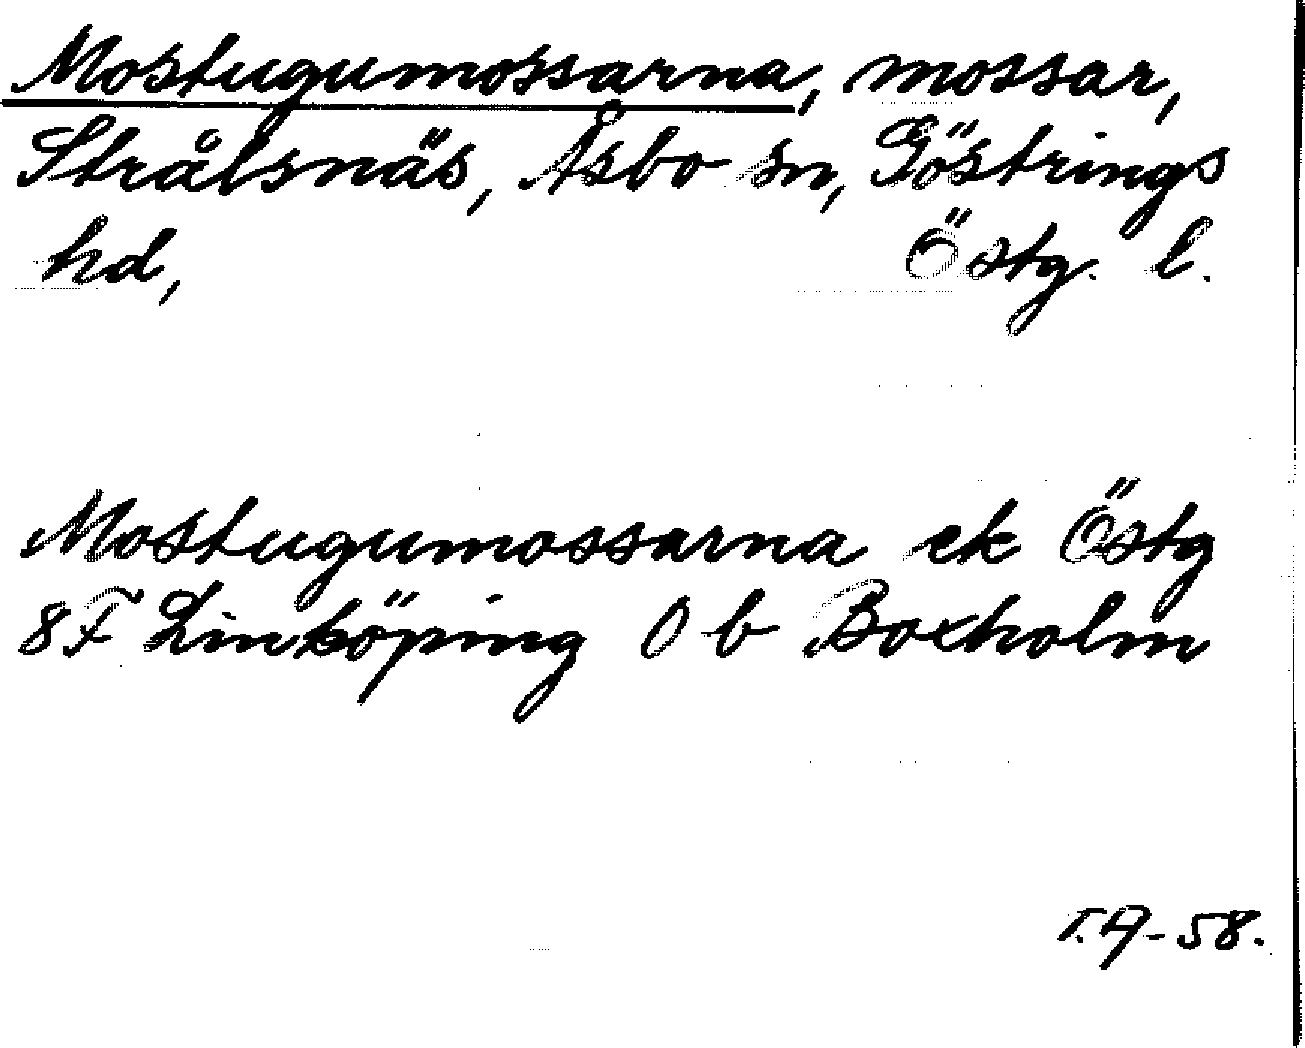 Mostugumossarna, mossar,
Strålsnäs, Åsbo sn, Göstrings
hd, Östg. l.
Mostugumossarna ek Östg
8F Linköping 0 b Boxholm
T.A-58.